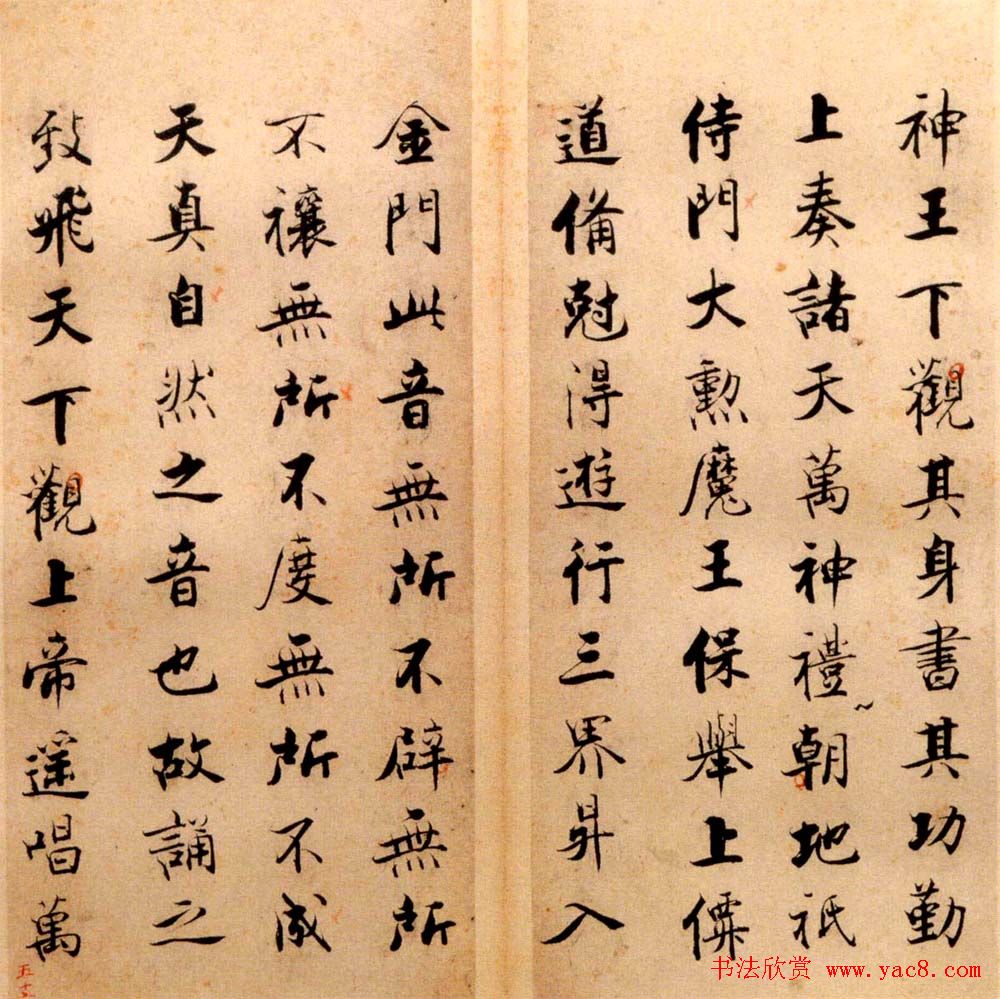 神王下觀其身書其功勤
上奏諸天萬神禮朝地祇
侍門大勲魔王保舉上僊
道備尅得遊行三界昇入
金門此音無所不辟無所
不禳無所不度無所不成
天真自然之音也故誦之
致飛天下觀上帝遥唱萬
五十
书法欣赏 www.yac8.com